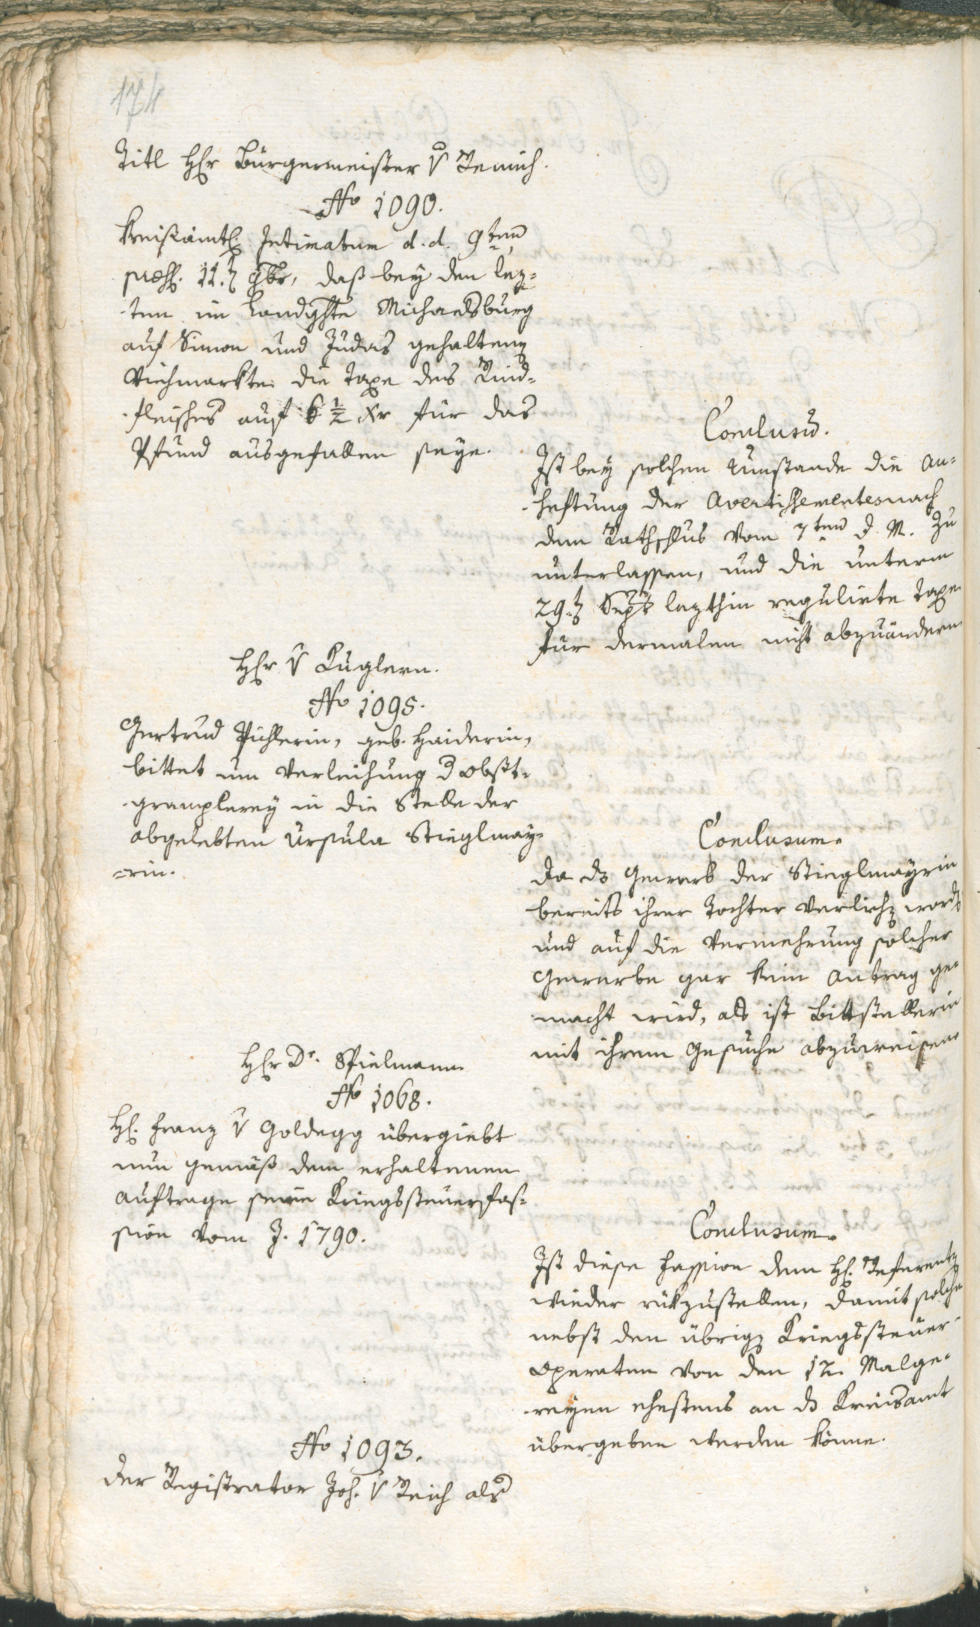 174
Titl Hr Bürgermeister v Remich.
No 1090.
Kreisämtl Intimatum d. d. 9ten,
präs. 11. 9br, daß bey den lez-
ten im Landghte Michaelsburg
auf Simon und Judas gehaltenen
Viehmarkte die Taxe des Rind-
fleisches auf 6 ½ Xr für das
Pfund ausgefallen seye.
Conclusum.
Ist bey solchen Umstande die An-
heftung der Avertissementes nach
dem Rathschlus vom 7ten d. M. zu
unterlassen, und die unterm
29. Sept lezthin regulirte Taxe
für dermalen nicht abzuändern
Hr v Kuglern.
No 1095.
Gertrud Pichlerin, geb. Haiderin,
bittet um Verleihung d Obst-
gramplerey in die Stelle der
abgelebten Ursula Stieglmay-
rin.
Conclusum.
Da ds Gewerb der Stieglmayrin
bereits ihrer Tochter verlieh word
und auf die Vermehrung solcher
Gewerbe gar kein Antrag ge-
macht wird, als ist Bittstellerin
mit ihrem Gesuche abzuweisen
Hr Dr. Spielmann
No 1068.
H. Franz v Goldegg übergiebt
nun gemäß dem erhaltenen
Auftrage seine Kriegssteuersfas-
sion vom J. 1790.
Conclusum.
Ist diese Fassion dem H. Referenten
wieder rükzustellen, damit solche
nebst den übrig Kriegssteuer-
operaten von den 12 Malge-
reyen ehestens an ds Kreisamt
übergeben werden könne.
No 1093.
Der Registrator Joh. v Reich als